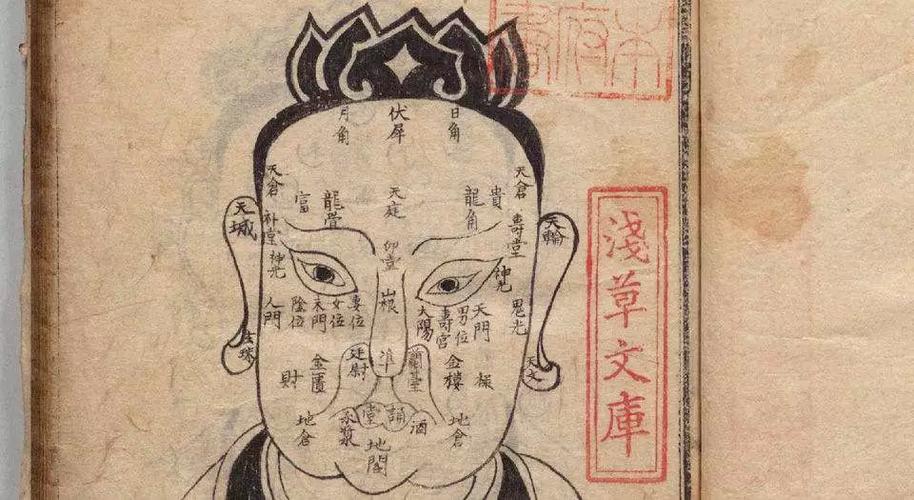 日角
伏犀
月角
天倉
天倉
貴
龍角
天庭
龍骨
富
天輪
壽堂
印堂
天城
神光
神光
山根
鬼光
天門
男位
壽宮
太陽
妻位
女位
陰位
人門
準
蘭臺
金樓
廷尉
金匱
財
地倉
酒
承漿
地倉
地閣
淺草文庫